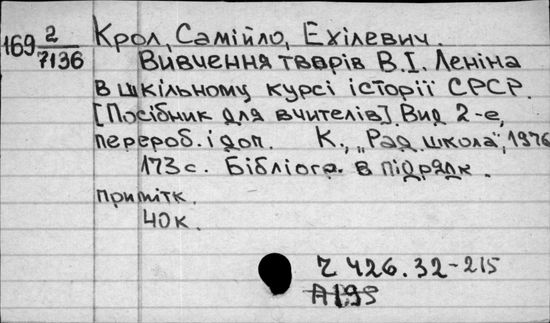 169 2/7136
Крол, Самійло, Ехілевич.
Вивчення творів В.І. Леніна
в шкільному курсі історії СРСР.
[Посібник для вчителів] Вид 2-е,
перероб. і доп. К., „Рад. школа", 1976
173 с. Бібліогр. в підрядк.
примітк.
40 к.
Z 426.32-215
А195